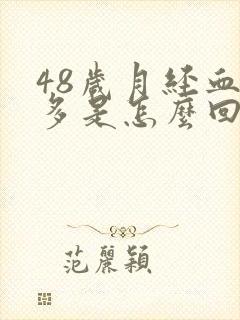 48歲月經血
多是怎麼回
范麗穎